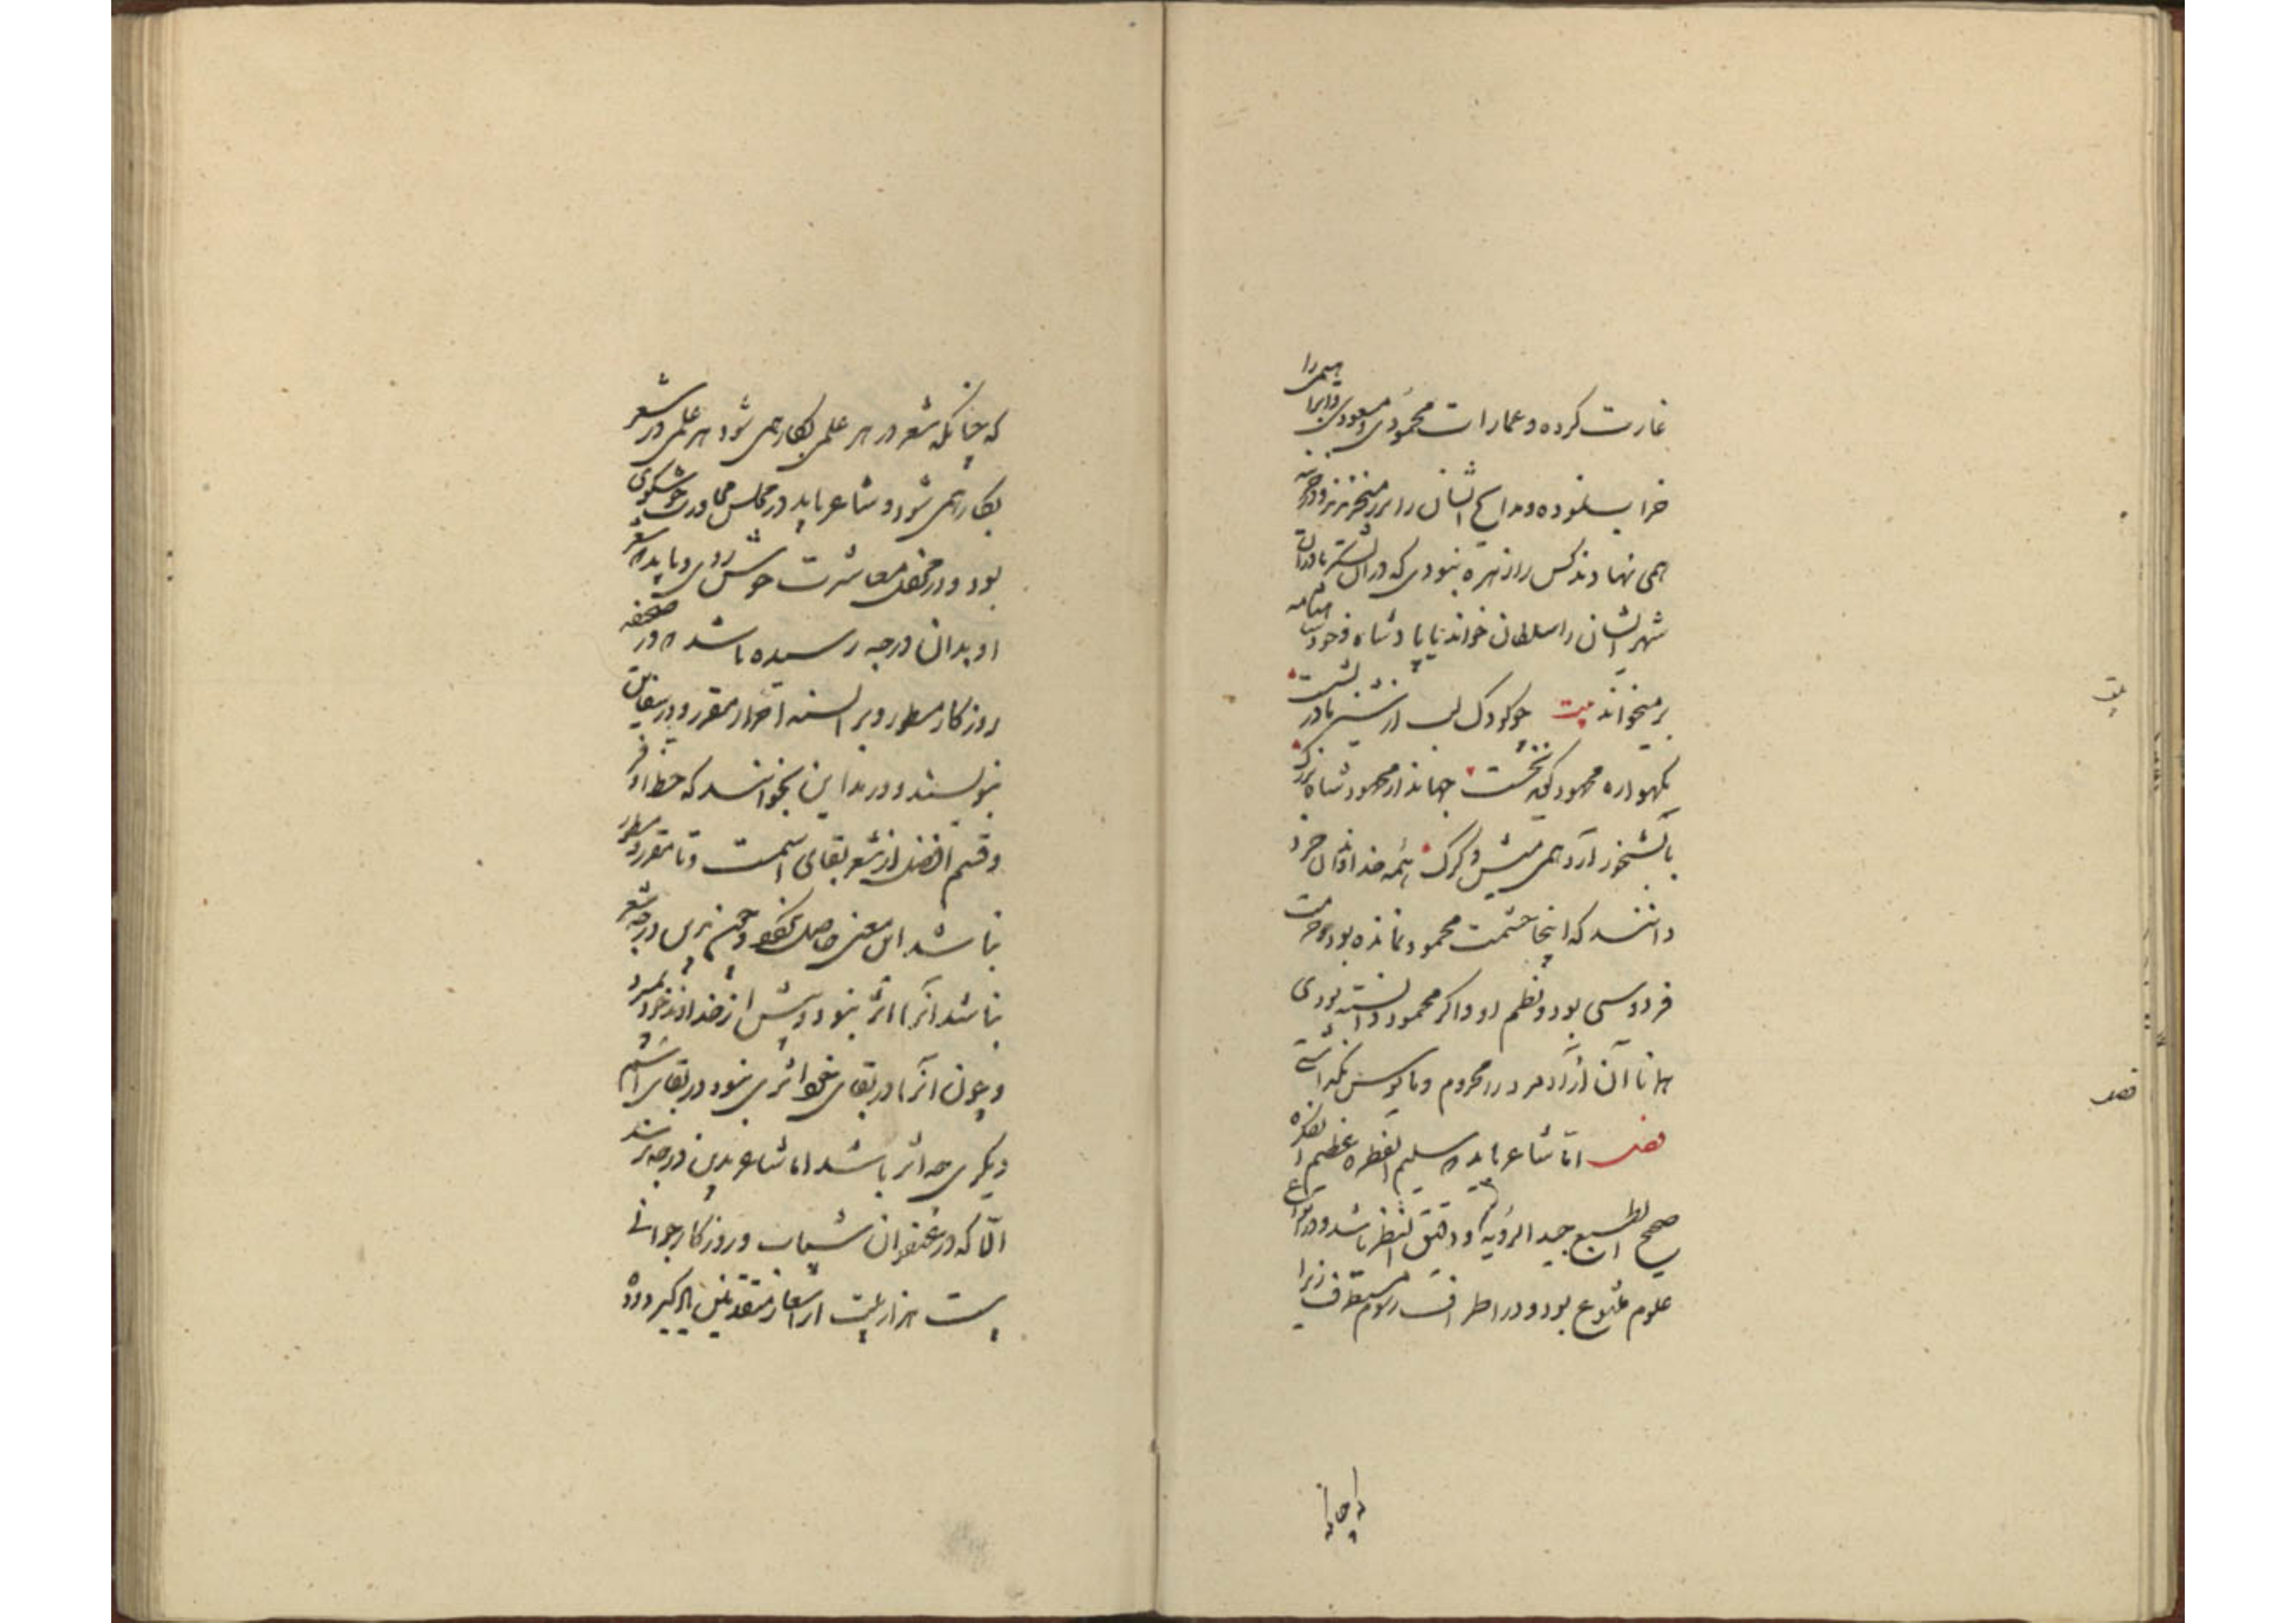 غارت کرده و عمارات محمودی و مسعودی و ابراهیمی را
خراب نموده و مدایح ایشان را بزر میخریدند و در خزینه
همی نهادند کس را زهره نبودی که در آن لشکر یا در آن
شهر ایشان را سلطان خواند تا پادشاه خود شاهنامه
برمیخواند بیت چو کودک لب از شیر مادر بشست
بگهواره محمود گوید نخست جهاندار محمود شاه بزرگ
بآبشخور آرد همی میش و گرگ همه خداوندان خرد
دانند که اینجا حشمت محمود نمانده بود حرمت
فردوسی بود و نظم او و اگر محمود دانسته بودی
همانا آن آزاد مرد را محروم و مایوس نگذاشتی
فصل اما شاعر باید که سلیم الفطره عظیم الفکره
صحیح الطبع جید الرویه و دقیق النظر باشد و در انواع
علوم متنوع بود و در اطراف رسوم مستطرف زیرا
که چنانکه
بیت
فصل
که چنانکه شعر در هر علمی بکار همی شود هر علمی در شعر
بکار همی شود و شاعر باید در مجلس محاورت خوشگوی
بود و در محفل معاشرت خوش روی و باید که شعر
او بدان درجه رسیده باشد که در صحیفه
روزگار مسطور و بر السنه احرار مقرر و در سفاین
بنویسند و در مداین بخوانند که حظ اوفر
و قسم افضل از شعر بقای اسمست و تا مقرر و مسطور
نباشد این معنی حاصل نگردد و چون بدین درجه شعر
نباشد آنرا اثر نبود و پیش از خداوند خود بمیرد
و چون آنرا در بقای خود اثری نبود در بقای اسم
دیگری چه اثر باشد اما شاعر بدین درجه نرسد
الا که در عنفوان شباب و روزگار جوانی
بیست هزار بیت از اشعار متقدمین یاد گیرد و ده